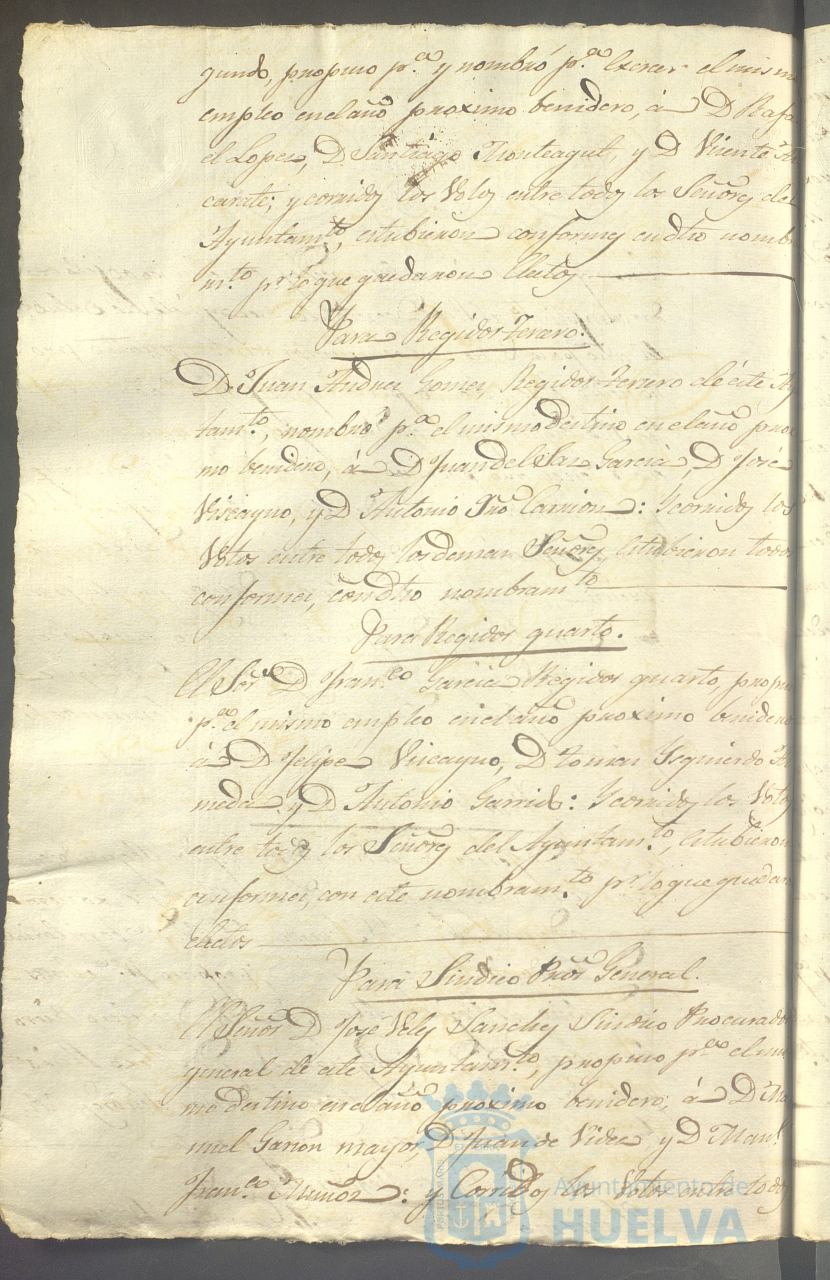 gundo, propuso p.ª y nombró p.ª Exercer el mism
empleo en el año proximo benidero, á D Rafa
el Lopez, D Santiago Monteagut, y D Vicente
carate; y corridos los Votos entre todos los Señores del
Ayuntam.to, estubieron conformes en dho nombr
m.to p.r lo que quedaron Electos
Para Regidor Terzero.
D Juan Andres Gomez, Regidor Terzero de este Ay
tam.to, nombró p.ª el mismo destino en el año proxi
mo benidero, á D Juan del Saz Garcia, D José
Viscayno, y D Antonio Carrion: Y corridos los
Votos entre todos los demas Señores, estubieron todos
conformes, con dho nombram.to
Para Regidor quarto.
El Sor D Fran.co Garcia Regidor quarto, propu
p.ª el mismo empleo en el año proximo benidero
á D Felipe Viscayno, D Tomas Ysquierdo
meda y D Antonio Garrido: Y corridos los Votos
entre todos los Señores del Ayuntam.to, Estubieron
conformes, con este nombram.to p.r lo que quedar
electos
Para Sindico Pror General.
El Señor D José Velez Sanchez Sindico Procurador
general de este Ayuntam.to, propuso p.ª el mis
mo destino en el año proximo benidero, á D Ma
nuel Garzon mayor, D Juan de Vides y D Man.l
Fran.co Muñoz: y Corridos los Votos entre todos
Ayuntamiento de
HUELVA